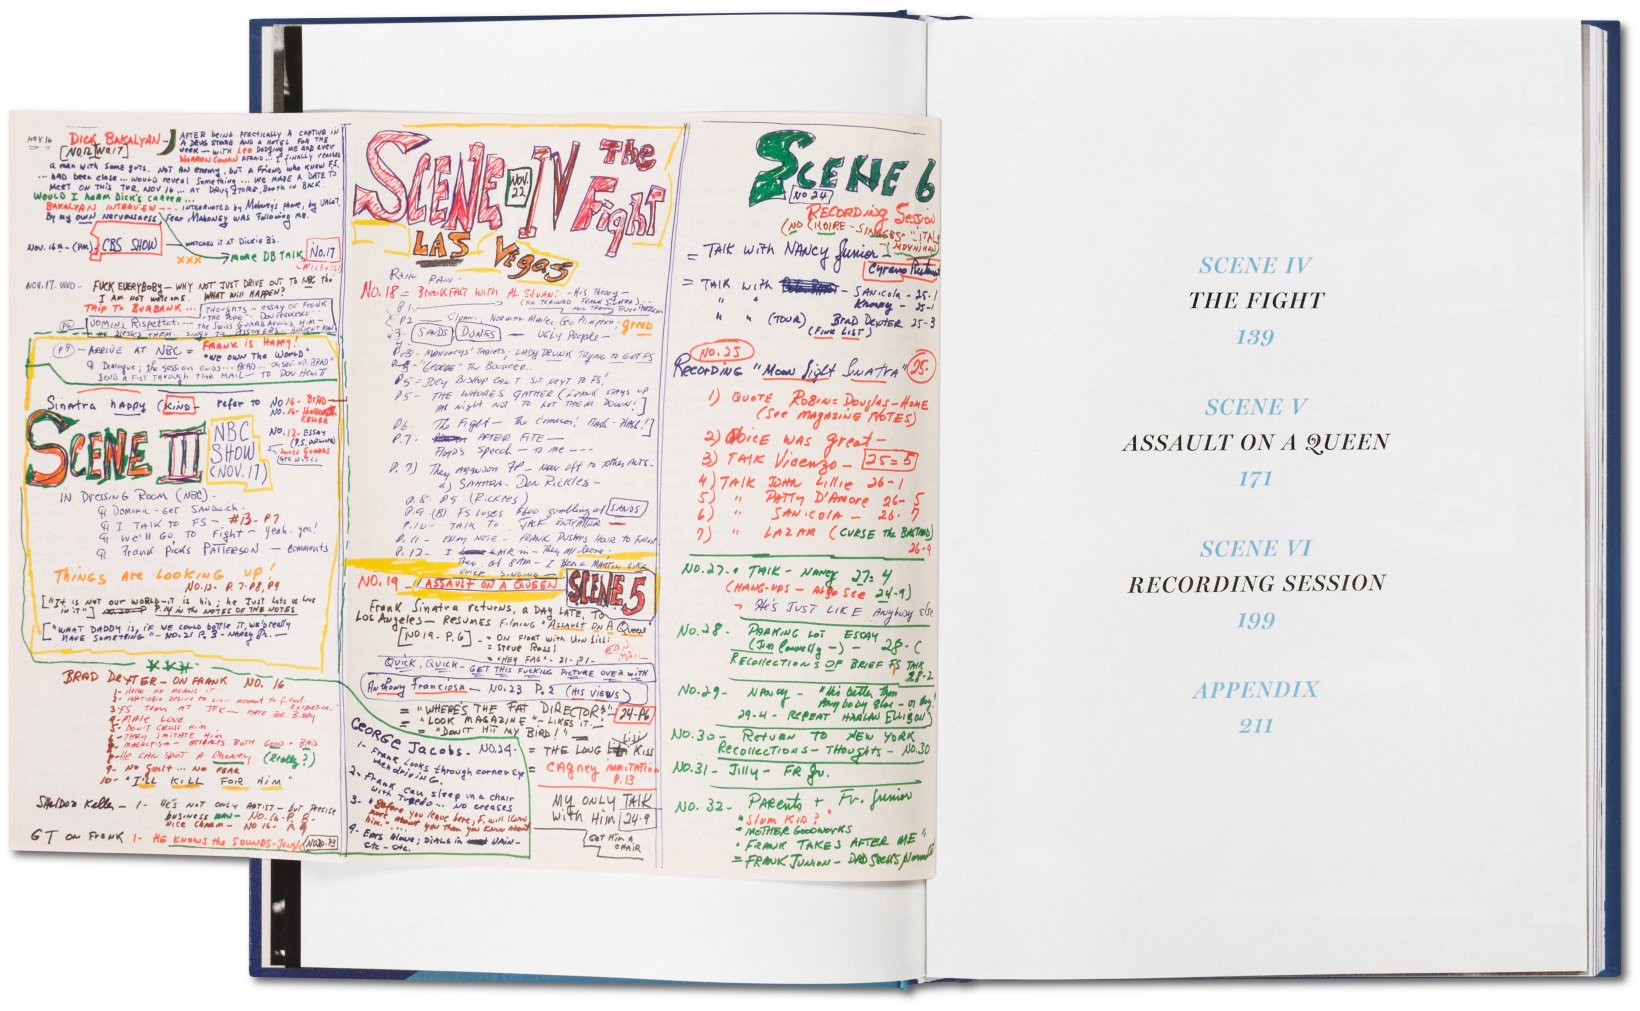 NOV 16
DICK BAKALYAN -
[NO.12] NO.17]
AFTER BEING PRACTICALLY A CAPTIVE IN
A DRUG STORE AND A HOTEL FOR THE
WEEK - WITH LEO DODGING ME AND EVER
WARREN COWAN AFRAID... I FINALLY REACHED
A MAN WITH SOME GUTS. NOT AN ENEMY, BUT A FRIEND WHO KNEW FS.
... HAD BEEN CLOSE ... WOULD REVEAL SOMETHING ... WE MADE A DATE TO
MEET ON THIS TUE, NOV 16 ... AT DRUG STORE, BOOTH IN BACK.
WOULD I HARM DICK'S CAREER...
BAKALYAN INTERVIEW --- INTERRUPTED by Mahoney's phone, by
By my OWN nervousness, fear Mahoney was following me.
NOV. 16th - (PM) CBS SHOW - WATCHED IT AT DICKIE B's.
XXX → MORE DB TALK NO.17
NOV. 17. WED - FUCK EVERYBODY - WHY NOT JUST DRIVE OUT TO NBC tho
I AM NOT WELCOME. WHAT WILL HAPPEN?
TRIP TO BURBANK ... THOUGHTS - ESSAY OF FRANK
"THE POPE" - DON FRANCESCO
UOMINI RISPETTATI... THE SWISS GUARD AROUND HIM -
HE BLESSES THEM.
(P7) - ARRIVE AT NBC = FRANK IS HAPPY!
"WE OWN THE WORLD"
Dialogue; the session ends... BRAD...
SEND A FIST THROUGH THE MAIL - TO DON HEWITT
Sinatra happy (KIND - refer to NO 16 - BRAD
NO. 16 -
KELLER
NO. 12 - ESSAY
SCENE III NBC
SHOW
(NOV. 17)
IN DRESSING ROOM (NBC) -
DOMONIC - GET SANDWICH
I TALK TO FS - #13 - P7
WE'll GO TO Fight - yeah. yea!
Frank Picks PATTERSON - COMMENTS
THINGS ARE LOOKING UP!
NO. 12 - P. 7-P8, P9
["IT IS NOT OUR WORLD - IT IS HIS; HE JUST LETS US LIVE
IN IT"] P. 14 IN THE NOTES OF THE NOTES
["WHAT DADDY IS, IF WE COULD BOTTLE IT, WE'D REALLY
HAVE SOMETHING" - NO. 21 P. 3 - NANCY JR. -
BRAD DEXTER - ON FRANK NO. 16
1- HELLO HE MEANS IT
2- INSATIABLE DESIRE TO LIVE MOMENT TO FULLEST
3- FS TEAM AT JFK - HATE FOR BOBBY
4- MALE LOVE
5- DON'T CROSS HIM
6- THEY IMITATE HIM
MAGNETISM - ATTRACTS BOTH GOOD + BAD
8- HE CAN SPOT A PHONEY (Really?)
9- NO GUILT... NO FEAR
10- "I'LL KILL FOR HIM"
SHELDON KELLER - 1- HE'S NOT ONLY ARTIST - BUT PRECISE
BUSINESS MAN - NO. 16 - P. 8 -
NICE CHARM - NO 16 - P. 9
GT ON FRANK 1- HE KNOWS THE SOUNDS -
SCENE IV The
NOV.
22
Fight
LAS VEGAS
RAIN PAIN -
NO. 18 = BREAKFAST WITH AL SILVANI - His Theory -
P1 - (HE TRAINED FRANK SINATRA)
P2 - Silvani, Norman Mailer, Geo Plimpton; greed
P3 - SANDS DUNES - UGLY PEOPLE -
P.3 - MAHONEY'S TABLETS; LADY DRUNK TRYING TO GET FS
"GEORGE" The Bouncer..
P5 = JOEY BISHOP CAN'T SIT NEXT TO FS!
P5 - THE WHORES GATHER (FRANK STAYS UP
All night NOT TO LET THEM DOWN!]
P6. THE Fight - the Cameras! Flash - Flash!]
P.7 - AFTER FITE -
Floyd's Speech - to me ---
P. 7) They ABANDON FP - Now off to other Acts.
a) SAHARA - Don Rickles -
P.8 P9 (RICKLES)
P.9 (B) FS LOSES $600 gambling at SANDS
P.10 - TALK TO JACK ENTRATTER -
P. 11 - ESSAY NOTE - FRANK PUSHES HOUR TO FULLEST
NO. 19 - ASSAULT ON A QUEEN SCENE 5
Frank Sinatra returns, a DAY LATE, TO
Los Angeles - RESUMES FILMING "ASSAULT ON A QUEEN"
[NO 19 - P. 6] - = ON FIGHT WITH Virn Lisi:
= STEVE ROSSI
= "HEY FAG" - 21 - P1 -
FAN
MAIL
QUICK, QUICK - GET THIS FUCKING PICTURE OVER WITH
Anthony Franciosa - NO. 23 P. 2 (HIS VIEWS)
= "WHERE'S THE FAT DIRECTOR?" 24-P6
= "LOOK MAGAZINE" - LIKES IT.
= "DON'T HIT MY BIRD!"
= THE LONG Lisi KISS
= CAGNEY IMITATION
P. 13
MY ONLY TALK
WITH HIM 24-9
GET HIM A
CHAIR
GEORGE JACOBS - NO. 24 -
1- Frank LOOKS through corner eye
when driving.
2- FRANK CAN SLEEP IN A CHAIR
WITH TUXEDO... NO CREASES
3- "Before you leave here, F. will know
more about you than you know about
him -
4- EATS ALONE; DIALS IN VAIN -
ETC - ETC.
SCENE 6
NO 24
RECORDING SESSION
= TALK WITH NANCY JUNIOR -
= TALK WITH - SANICOLA - 25-1
" " 25-1
" " (TOUR) BRAD DEXTER 25-3
(FINK LIST)
NO. 25
RECORDING "MOON LIGHT SINATRA" 25-
1) QUOTE ROBIN = DOUGLAS - HOME
(See MAGAZINE NOTES)
2) VOICE WAS great -
3) TALK Vicenzo - 25=5
4) TALK JOHN LILLIE 26-1
5) " PATTY D'AMORE 26-5
6) " SANICOLA - 26-7
7) " LAZAR (CURSE THE BASTARD)
26-9
NO. 27. = TALK - NANCY 27=4
(HANG-UPS - Also See 24-9)
→ He's JUST LIKE Anybody else
NO. 28 - PARKING LOT ESSAY
(Jim Connelly -) - 28-C
RECOLLECTIONS OF BRIEF FS TALK
28-2
NO. 29 - NANCY - "His better then
Anybody else -
29-4 - REPEAT HARLAN ELLISON
NO. 30 - RETURN TO NEW YORK
Recollections - THOUGHTS - NO. 30
NO. 31 - JILLY - FR Jr.
NO. 32 - PARENTS + Fr. Junior
"SLUM KID?"
"MOTHER GOODWORKS
"FRANK TAKES AFTER ME"
= FRANK JUNIOR - DAD SEEKS
SCENE IV
THE FIGHT
139
SCENE V
ASSAULT ON A QUEEN
171
SCENE VI
RECORDING SESSION
199
APPENDIX
211